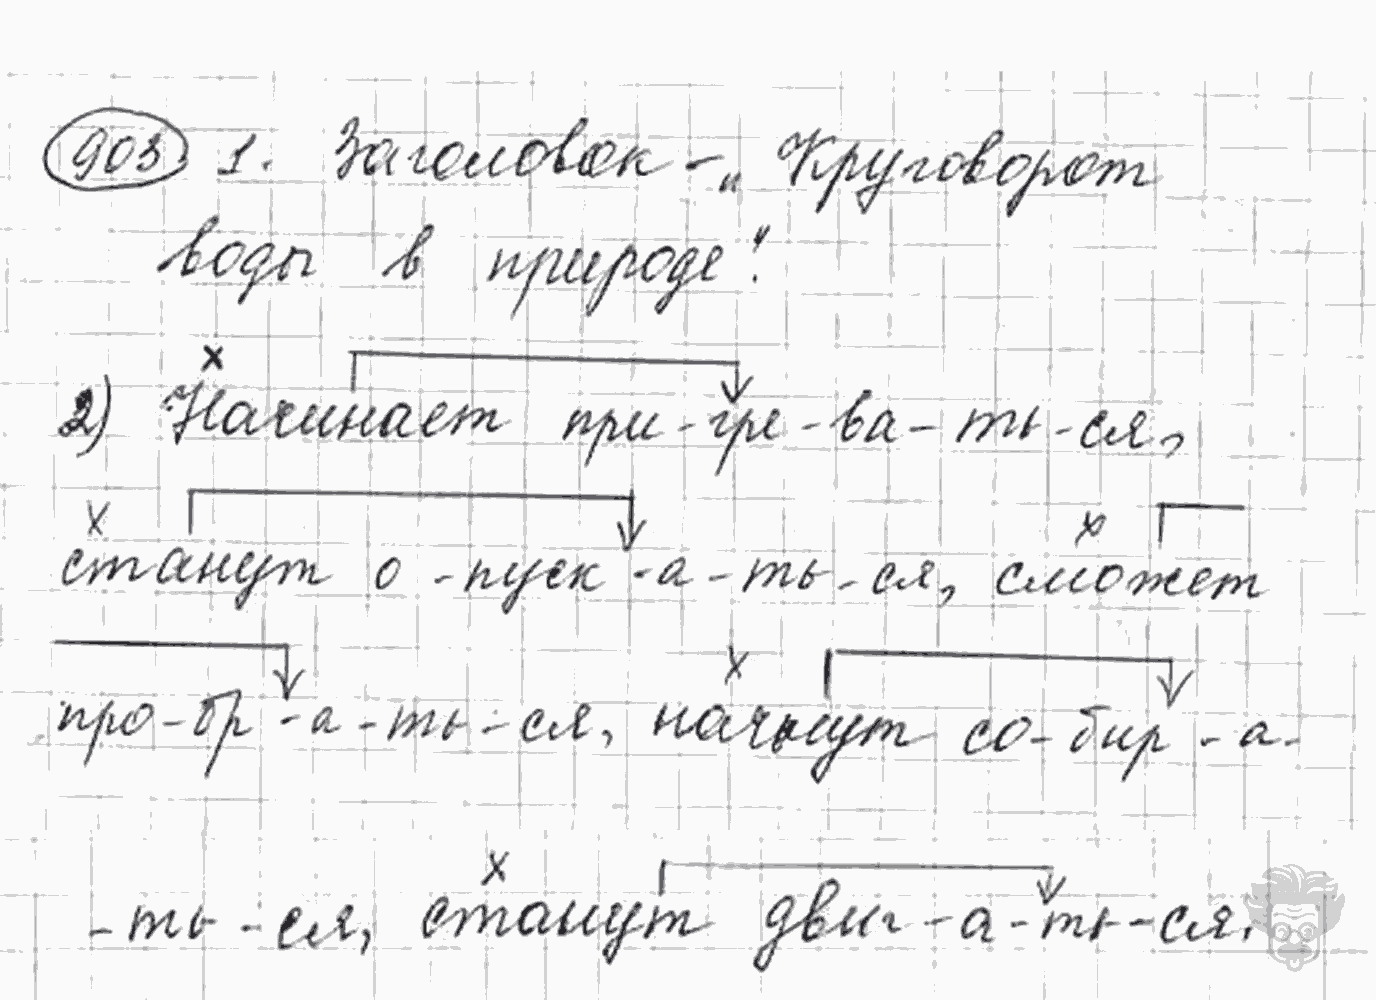 903 1. Заголовок - „Круговорот
воды в природе“.
2) Начинает при-гре-ва-ть-ся,
станут о-пуск-а-ть-ся, сможет
про-бр-а-ть-ся, начнут со-бир-а-
-ть-ся, станут двиг-а-ть-ся.